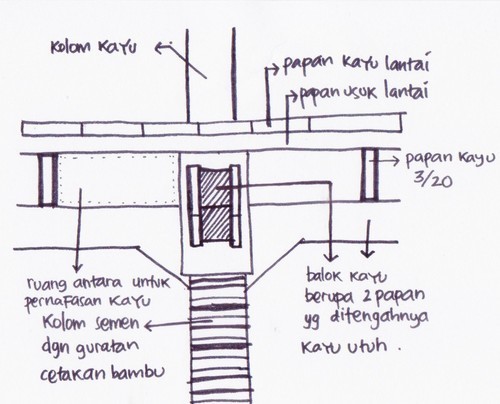 kolom kayu
papan kayu lantai
papan usuk lantai
papan kayu
3/20
ruang antara untuk
pernafasan kayu
kolom semen
dgn guratan
cetakan bambu
balok kayu
berupa 2 papan
yg ditengahnya
kayu utuh .